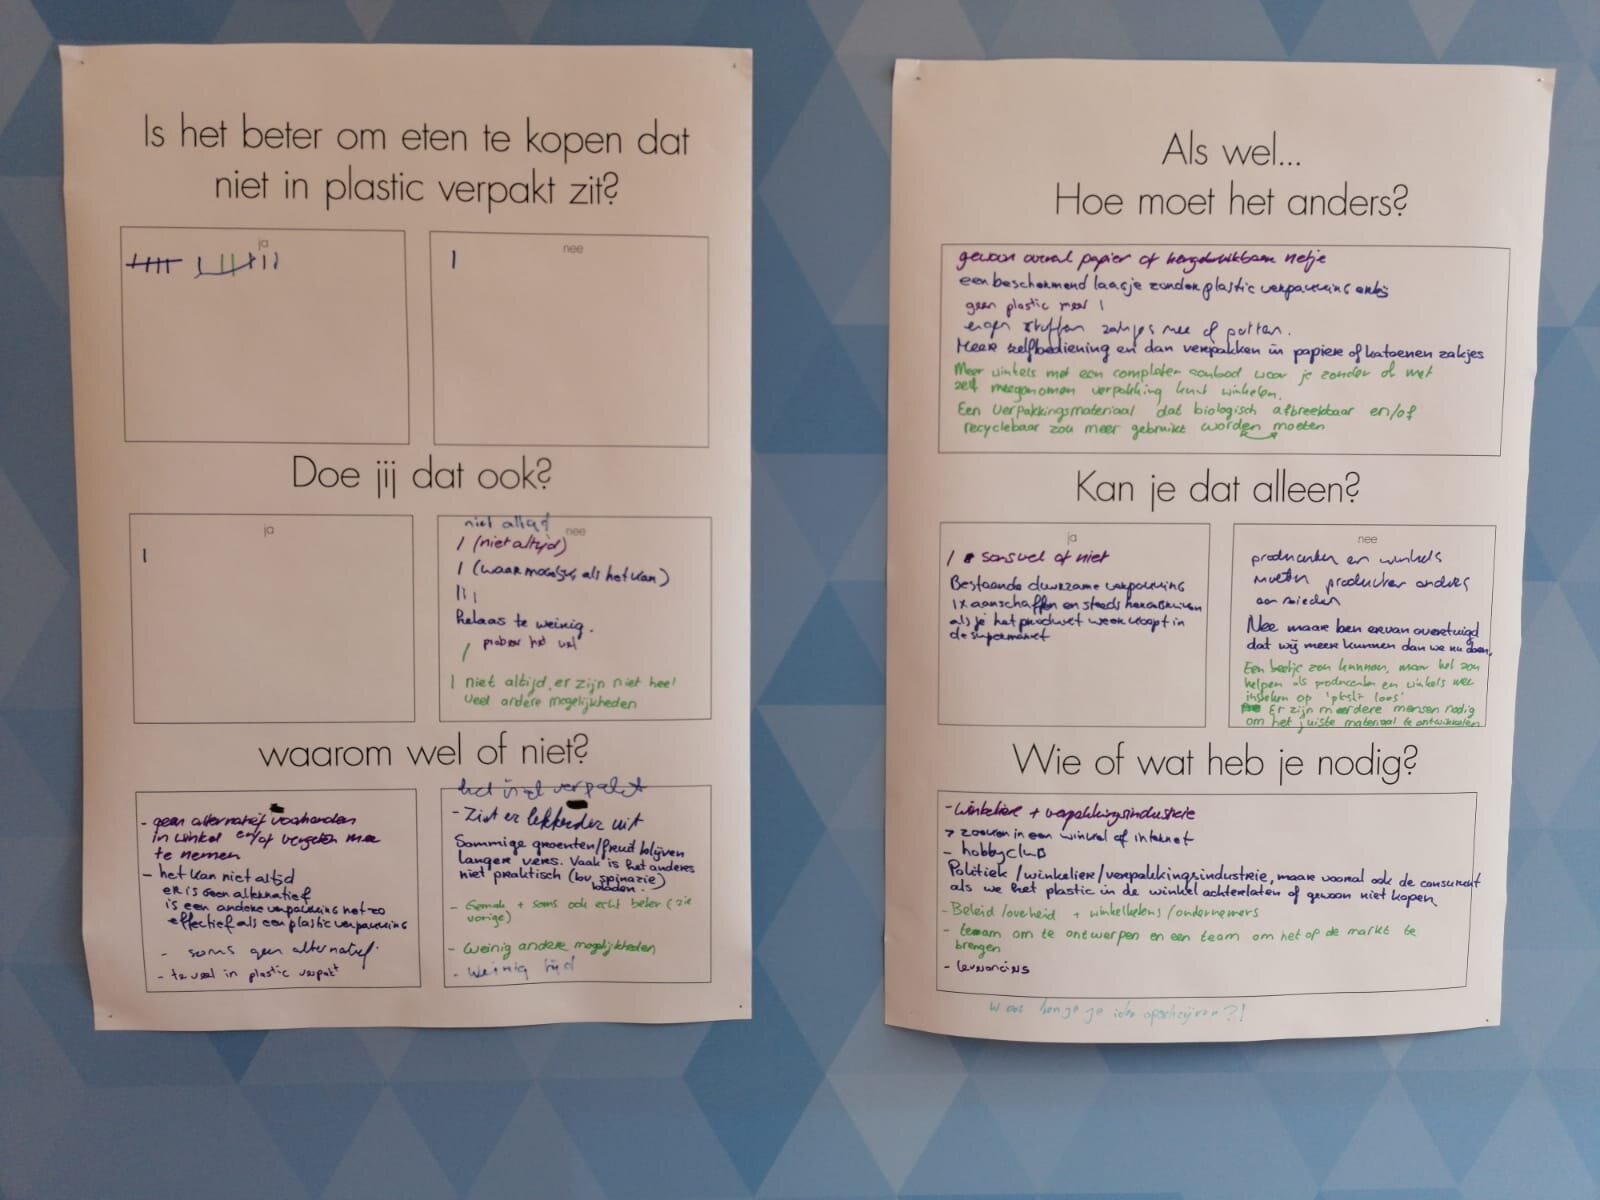 Is het beter om eten te kopen dat
niet in plastic verpakt zit?
ja
nee
Doe jij dat ook?
ja
nee
niet altijd
(niet altijd)
(waar mogelijk, als het kan)
helaas te weinig.
probeer het wel
niet altijd, er zijn niet heel
veel andere mogelijkheden
waarom wel of niet?
- geen alternatief voorhanden
in winkel en/of vergeten mee
te nemen
- het kan niet altijd
er is geen alternatief
is een andere verpakking net zo
effectief als een plastic verpakking
- soms geen alternatief.
- te veel in plastic verpakt
het is al verpakt
- Ziet er lekkerder uit
Sommige groenten/fruit blijven
langer vers. Vaak is het anders
niet praktisch (bv. spinazie)
bladen.
- Gemak + soms ook echt beter (zie
vorige)
- weinig andere mogelijkheden
- weinig tijd
Als wel...
Hoe moet het anders?
gewoon overal papier of hergebruikbaar netje
een beschermend laagje zonder plastic verpakking
geen plastic meer!
eigen stoffen zakjes mee of potten.
Meer zelfbediening en dan verpakken in papiere of katoenen zakjes
Meer winkels met een completer aanbod waar je zonder of met
zelf meegenomen verpakking kunt winkelen.
Een Verpakkingsmateriaal dat biologisch afbreekbaar en/of
recyclebaar zou meer gebruikt worden moeten
Kan je dat alleen?
ja
nee
soms wel of niet
Bestaande duurzame verpakking
1x aanschaffen en steeds hergebruiken
als je het product weer koopt in
de supermarkt
producenten en winkels
moeten producten anders
aanbieden
Nee maar ben ervan overtuigd
dat wij meer kunnen dan we nu doen.
Een beetje zou kunnen, maar het zou
helpen als producenten en winkels mee
insteken op 'plastic loos'
Er zijn meerdere mensen nodig
om het juiste materiaal te ontwikkelen
Wie of wat heb je nodig?
- winkeliers + verpakkingsindustrie
> zoeken in een winkel of internet
- hobbyclub
Politiek /winkelier/verpakkingsindustrie, maar vooral ook de consument
als we het plastic in de winkel achterlaten of gewoon niet kopen
- Beleid /overheid + winkelketens /ondernemers
- team om te ontwerpen en een team om het op de markt te
brengen
- leveranciers
waar kan je je idee opschrijven?!